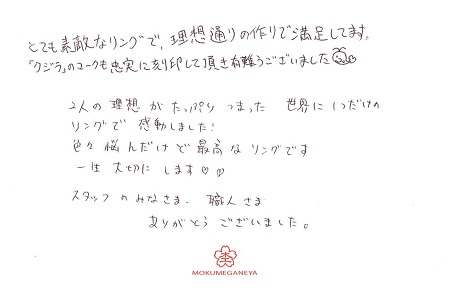 とても素敵なリングで、理想通りの作りで満足してます。
「クジラ」のマークも忠実に刻印して頂き有難うございました
2人の理想がたっぷりつまった 世界に1つだけの
リングで 感動しました!
色々悩んだけど最高なリングです
一生大切にします♡♡
スタッフのみなさま、職人さま
ありがとうございました。
MOKUMEGANEYA